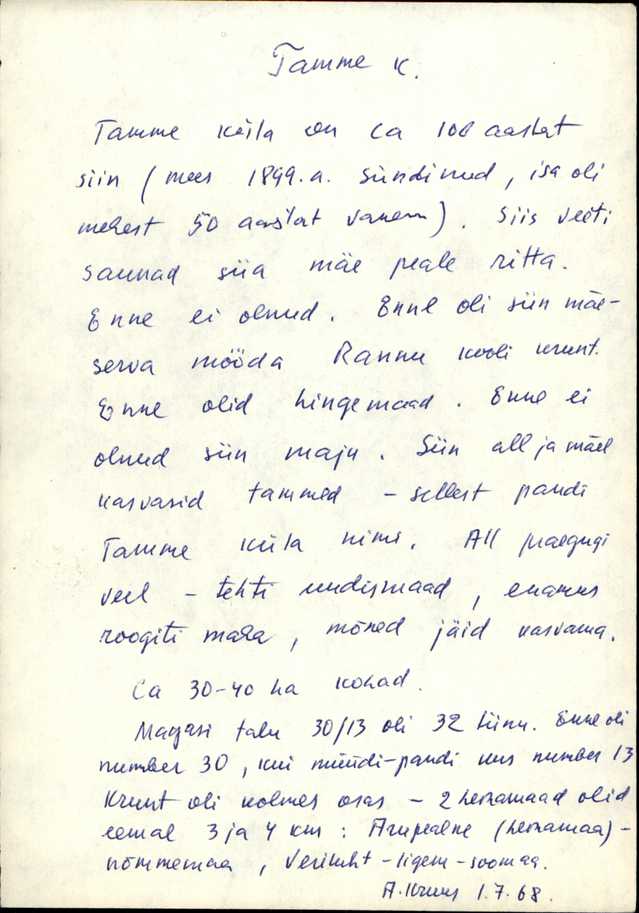 Tamme k.
Tamme küla on ca 100 aastat
siin (mees 1899.a. sündinud, isa oli
mehest 50 aastat vanem). Siis veeti
saunad siia mäe peale ritta.
Enne ei olnud. Enne oli siin mäe-
serva mööda Rannu kooli krunt.
Enne olid hingemaad. Enne ei
olnud siin maju. Siin all ja mäel
kasvasid tammed - sellest pandi
Tamme küla nimi. All praegugi
veel - tehti uudismaad, enamus
roogiti maha, mõned jäid kasvama.
Ca 30-40 ha kohad.
Magasi talu 30/13 oli 32 tiinu. Enne oli
number 30, kui müüdi-pandi uus number 13
Krunt oli kolmes osas - 2 heinamaad olid
eemal 3 ja 4 km: Arupealne (heinamaa) -
nõmmemaa, - ligem - soomaa.
A. Kruus 1.7.68.